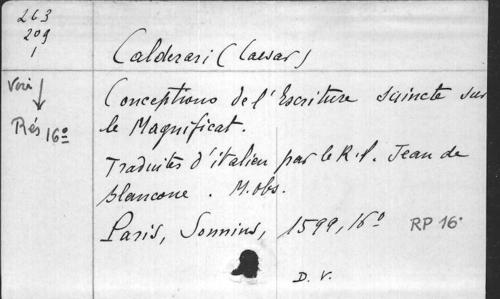 263
209
1
Calderari (Caesar)
Voir
Rés 16º
Conceptions de l'Escriture saincte sur
le Magnificat.
Traduites d'italien par le R.P. Jean de
blancone. M. obs.
Paris, Sonnius, 1599, 16º
RP 16º
D. V.